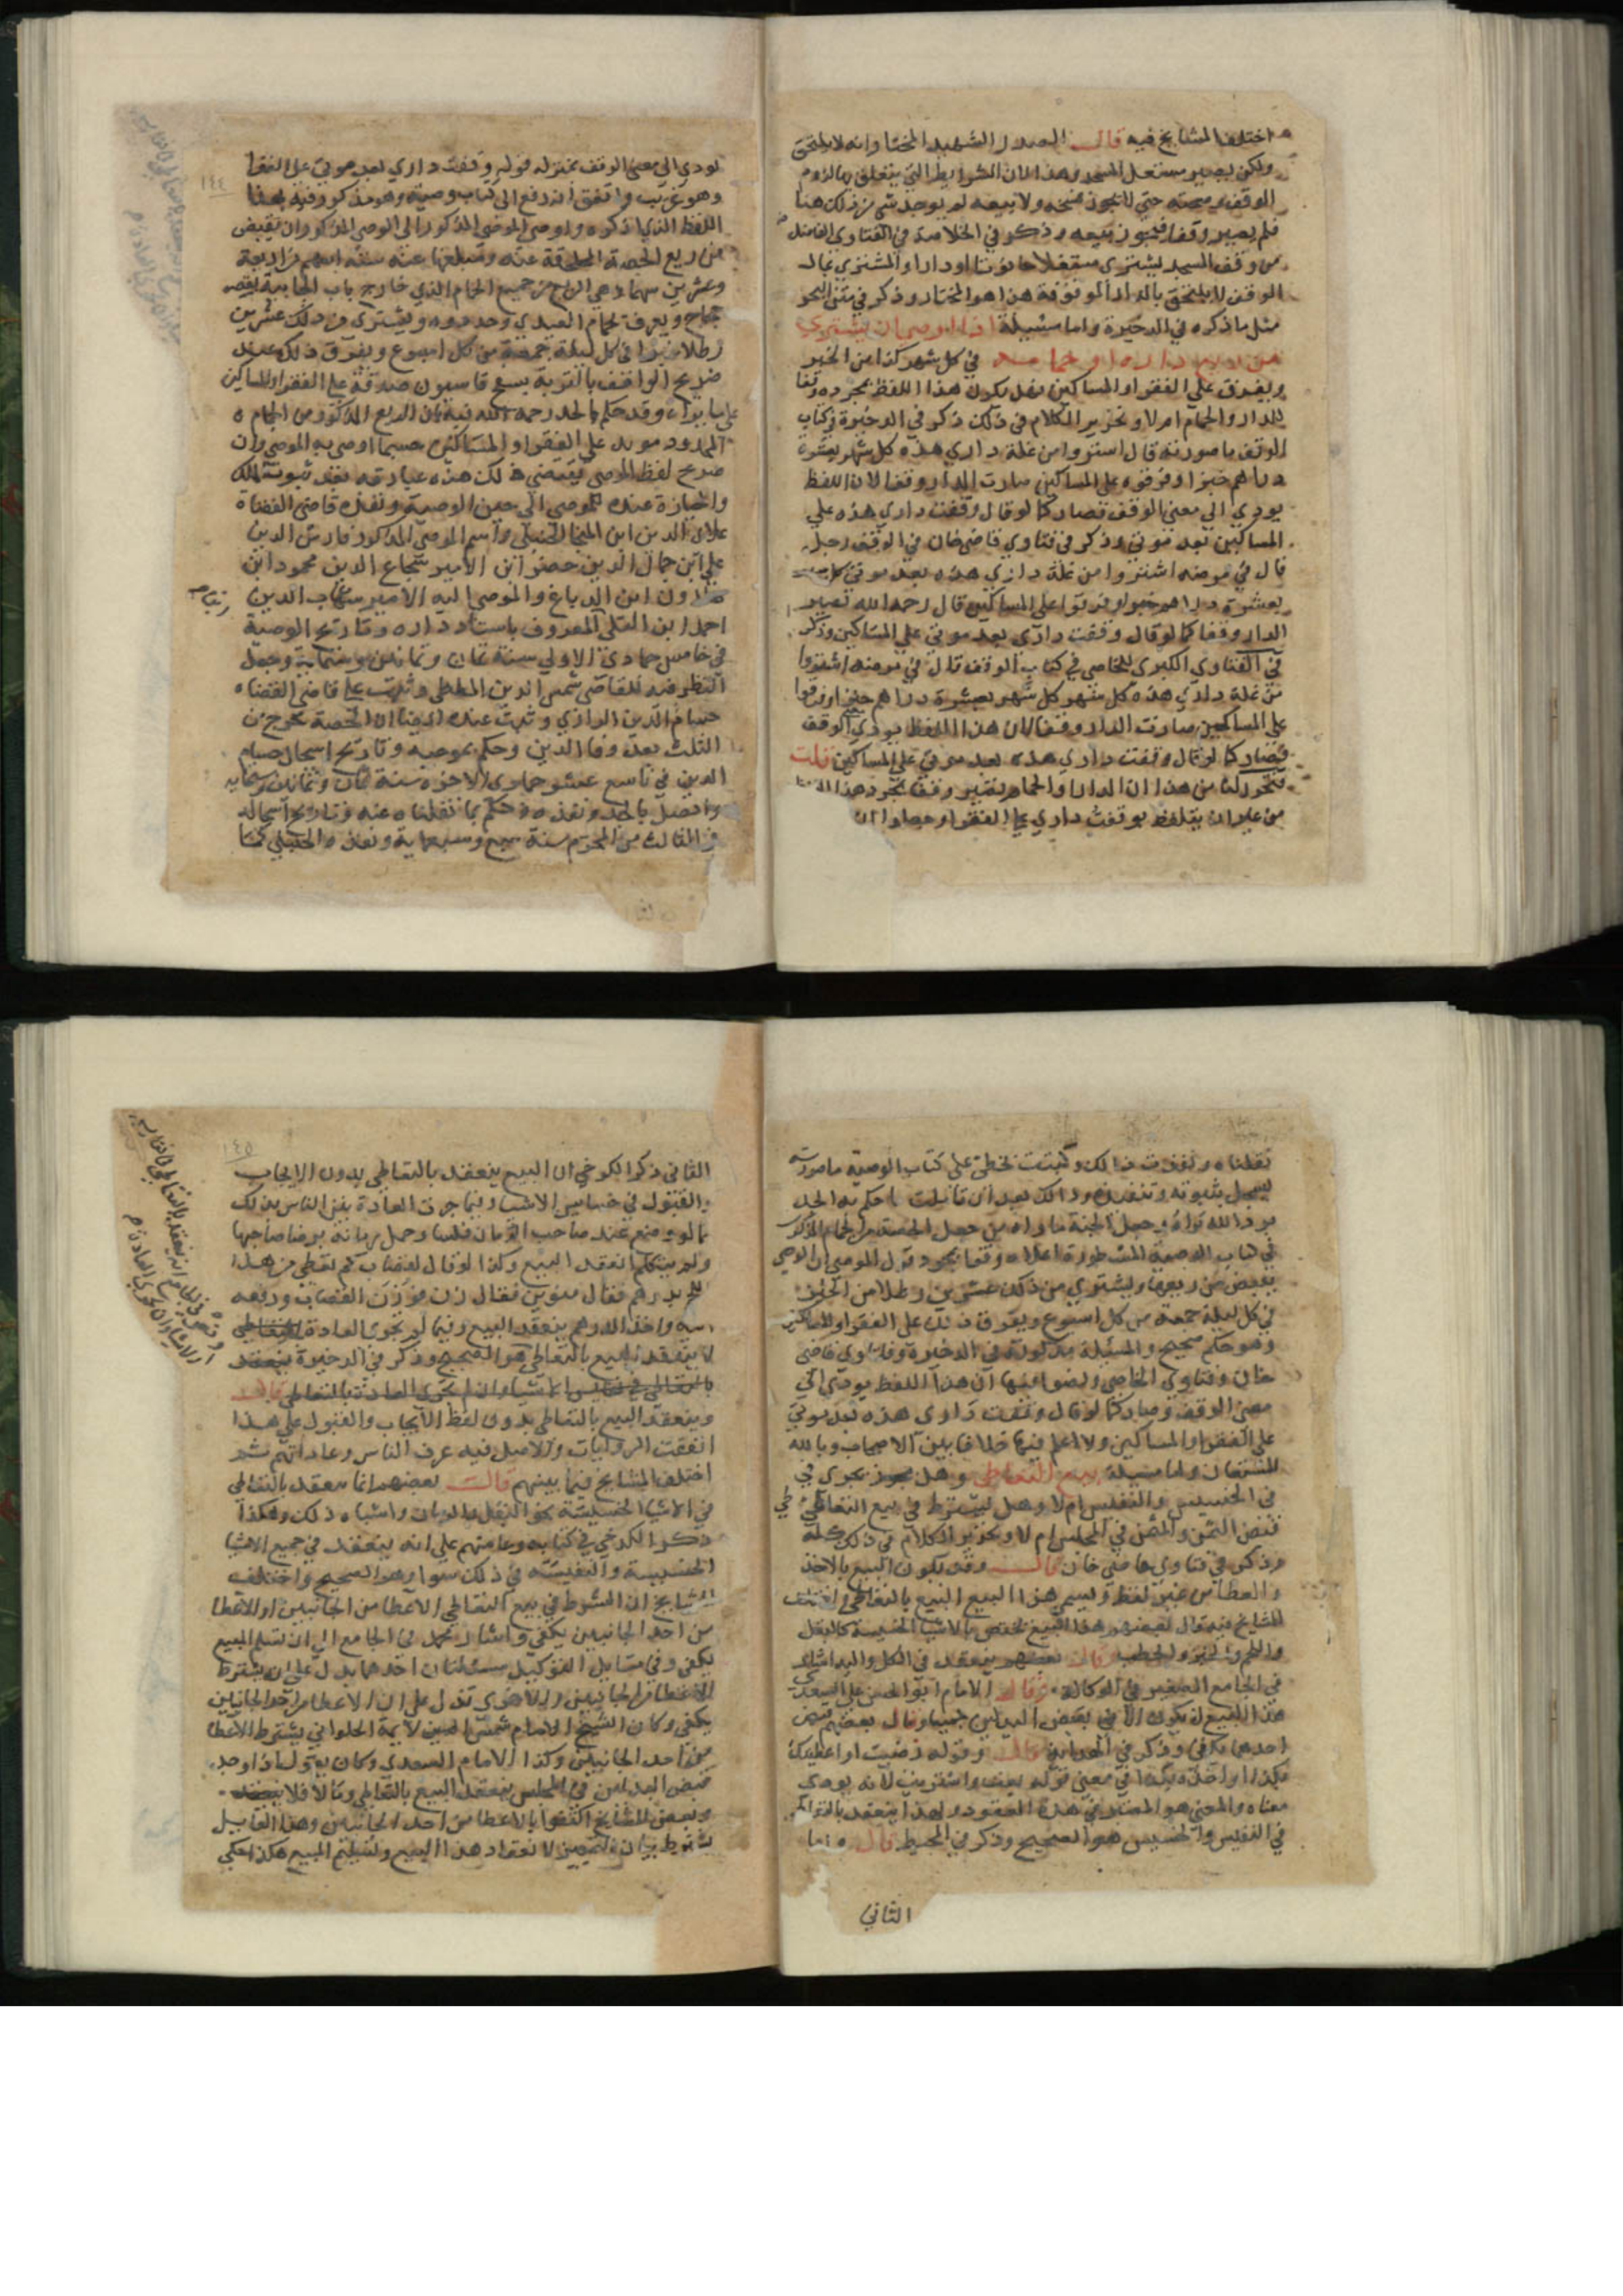 اختلف المشايخ فيه قال الصدر الشهيد المختار انه لا يلتحق
ولكن يصير مستغل المسجد وهذا لان الشرايط التي يتعلق بها لزوم
الوقف وصحته حتى لا يجوز فسخه ولا بيعه لم يوجد شي من ذلك هنا
فلم يصير وقفا فيجوز بيعه وذكر في الخلاصة في الفتاوي الفاضل
من وقف المسجد ليشتري مستغلا حانوتا او دارا والمشتري بمال
الوقف لا يلتحق بالدار الموقوفة هذا هو المختار وذكر في
مثل ما ذكره في الذخيرة واما مسئلة اذا اوصى ان يشتري
من ريع داره او حمامه في كل شهر كذا من الخبز
ويفرق على الفقراء والمساكين فهل يكون هذا اللفظ بمجرده وقفا
للدار والحمام ام لا وتحرير الكلام في ذلك ذكر في الذخيرة في كتاب
الوقف ما صورته قال اشتروا من غلة داري هذه كل شهر بعشرة
دراهم خبزا وفرقوه على المساكين صارت الدار وقفا لان اللفظ
يودي الى معنى الوقف فصار كما لو قال وقفت داري هذه على
المساكين بعد موتي وذكر في فتاوي قاضي خان في الوقف رجل
قال في مرضه اشتروا من غلة داري هذه بعد موتي كل
بعشرة دراهم خبزا وفرقوا على المساكين قال رحمه الله تصير
الدار وقفا كما لو قال وقفت داري بعد موتي على المساكين وذكر
في الفتاوي الكبرى للخاصي في كتاب الوقف قال في مرضه اشتروا
من غلة داري هذه كل شهر بعشرة دراهم خبزا وفرقوا
على المساكين صارت الدار وقفا لان هذا اللفظ يودي الوقف
فصار كما لو قال وقفت داري هذه بعد موتي على المساكين قلت
فتحرر لنا من هذا ان الدار والحمام تصير وقفا بمجرد هذا
من غير ان يتلفظ بوقفت داري على الفقرا وحمامي
١٤٤
يودي الى معنى الوقف بمنزلة قوله وقفت داري بعد موتي على الفقرا
وهو غريب واتفق ان رفع الى كتاب وصية وهو مذكور فيه بهذا
اللفظ الذي اذكره واوصى الموصي المذكور الى الوصي المذكور ان يقبض
من ريع الحصة عنه ومبلغها عنه ستة اسهم من اربعة
وعشرين سهما هي الربع من جميع الحمام الذي خارج باب الجابية بقصر
حجاج ويعرف بحمام العبدي وحدوده ويشتري من ذلك عشرين
رطلا خبزا في كل ليلة جمعة من كل اسبوع ويفرق ذلك عند
ضريح الواقف بالتربة بسفح قاسيون صدقة على الفقرا والمساكين
على ما يراه وقد حكم الحد رحمه الله فيه بان الربع المذكور من الحمام
المحدود موبد على الفقرا والمساكين حسبما اوصى به الموصي وان
صريح لفظ الموصي يقتضي ذلك هذه عبارته بعد ثبوت الملك
والحيازة عنده للموصي الى حين الوصية ونفذه قاضي القضاة
علاي الدين ابن المنجا الحنبلي واسم الموصي المذكور فارس الدين
علي ابن جمال الدين خضر ابن الامير شجاع الدين محمود ابن
ابن الدباغ والموصى اليه الامير شهاب الدين
احمد ابن المعروف باستاد داره وتاريخ الوصية
في خامس جمادى الاولى سنة ثمان وثمانين وستماية وجعل
النظر فيه للقاضي شمس الدين الملطي وثبت على قاضي القضاة
حسام الدين الرازي وثبت عنده ايضا ان الحصة تخرج من
الثلث بعد وفا الدين وحكم بموجبه وتاريخ اسجال حسام
الدين في تاسع عشر جمادى الاخره سنة ثمان وثمانين وستمايه
واتصل بالحد ونفذه وحكم بما نقلناه عنه وتاريخ اسجاله
في الثالث من المحرم سنة وسبعماية ونفذه الحنبلي كما
نقلناه ونفذت ذلك وكتبت بخطي على كتاب الوصية ما صورته
ليسجل بثبوته وتنفيذه وذلك بعد ان قابلت ما حكم به الحد
برد الله ثراه وجعل الجنة ماواه من جعل الحصة من الحمام المذكور
في كتاب الوصية المسطورة اعلاه وقفا بمجرد قول الموصي ان الوصي
يقبض من ريعها ويشتري من ذلك عشرين رطلا من الخبز
في كل ليلة جمعة من كل اسبوع ويفرق ذلك على الفقرا والمساكين
وهو حكم صحيح والمسئلة مذكورة في الذخيرة وفتاوي قاضي
خان وفتاوى الخاصي ونصوا فيها ان هذا اللفظ يودي الى
معنى الوقف وصار كما لو قال وقفت داري هذه بعد موتي
على الفقرا والمساكين ولا اعلم فيها خلافا بين الاصحاب وبالله
المستعان واما مسئلة بيع التعاطي وهل يجوز يجري في
في الخسيس والنفيس ام لا وهل يشترط في بيع التعاطي
قبض الثمن والمثمن في المجلس ام لا وتحرير الكلام في ذلك كله
وذكر في فتاوي قاضي خان قال وقد يكون البيع بالاخذ
والعطا من غير لفظ ويسمى هذا البيع البيع بالتعاطي واختلف
المشايخ فيه قال بعضهم هذا البيع يختص بالاشيا الخسيسة كالبقل
واللحم والخبز والحطب وقال بعضهم ينعقد في الكل واليه اشار
في الجامع الصغير في الوكالة وقال الامام ابو الحسن علي السعدي
هذا البيع ان يكون الا في بقبض البدلين جميعا وقال بعضهم قبض
احدهما يكفي وذكر في الهداية قال وقوله رضيت او اعطيتك
بكذا او اخذه بكذا في معنى قوله بعت واشتريت لانه يودي
معناه والمعنى هو المعتبر في هذه العقود ولهذا ينعقد بالتعاطي
في النفيس والخسيس هو الصحيح وذكر في المحيط قال
الثاني
١٤٥
الثاني ذكر الكرخي ان البيع ينعقد بالتعاطي بدون الايجاب
والقبول في خسايس الاشيا وبما جرت العادة بين الناس بذلك
كما لو وضع عند صاحب الرمان فلسا وحمل رمانة برضا صاحبها
ولم يتكلم انعقد البيع وكذا لو قال لقصاب كم تعطي من هذا
اللحم بدرهم فقال منوين فقال زن فوزن القصاب ودفعه
اليه واخذ الدرهم ينعقد البيع وفيما لم تجري العادة بالتعاطي
لا ينعقد البيع بالتعاطي هو الصحيح وذكر في الذخيرة ينعقد
بالتعاطي في نفايس الاشيا وان لم تجري العادة بالتعاطي قال
وينعقد البيع بالتعاطي بدون لفظ الايجاب والقبول على هذا
اتفقت الروايات والاصل فيه عرف الناس وعاداتهم ثم
اختلف المشايخ فيما بينهم قال بعضهم انما ينعقد بالتعاطي
في الاشيا الخسيسة نحو البقل والرمان واشباه ذلك وهكذا
ذكر الكرخي في كتابه وعامتهم على انه ينعقد في جميع الاشيا
الخسيسة والنفيسة في ذلك سوا وهو الصحيح واختلف
المشايخ ان الشرط في بيع التعاطي الاعطا من الجانبين او الاعطا
من احد الجانبين يكفي واشار محمد في الجامع الى ان تسليم المبيع
يكفي وفي مسايل التوكيل مسئلتان احدهما يدل على ان يشترط
الاعطا من الجانبين والاخرى تدل على ان الاعطا من احد الجانبين
يكفي وكان الشيخ الامام شمس الدين لايمة الحلواني يشترط الاعطا
من احد الجانبين وكذا الامام السعدي وكان يقول اذا وجد
قبض البدلين في المجلس ينعقد البيع بالتعاطي وما لا فلا ينعقد
وبعض المشايخ اكتفوا بالاعطا من احد الجانبين وهذا القايل
يشترط بيان الثمن لانعقاد هذا البيع وتسليم المبيع هكذا حكي